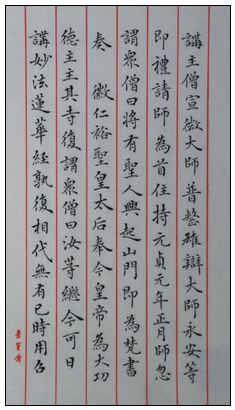 講主僧宣微大師普整雄辯大師永安等
即禮請師為首住持元貞元年正月師忽
謂眾僧曰將有聖人興起山門即為梵書
奏 徽仁裕聖皇太后奉今皇帝為大功
德主主其寺復謂眾僧曰汝等繼今可日
講妙法蓮華經孰復相代無有已時用召